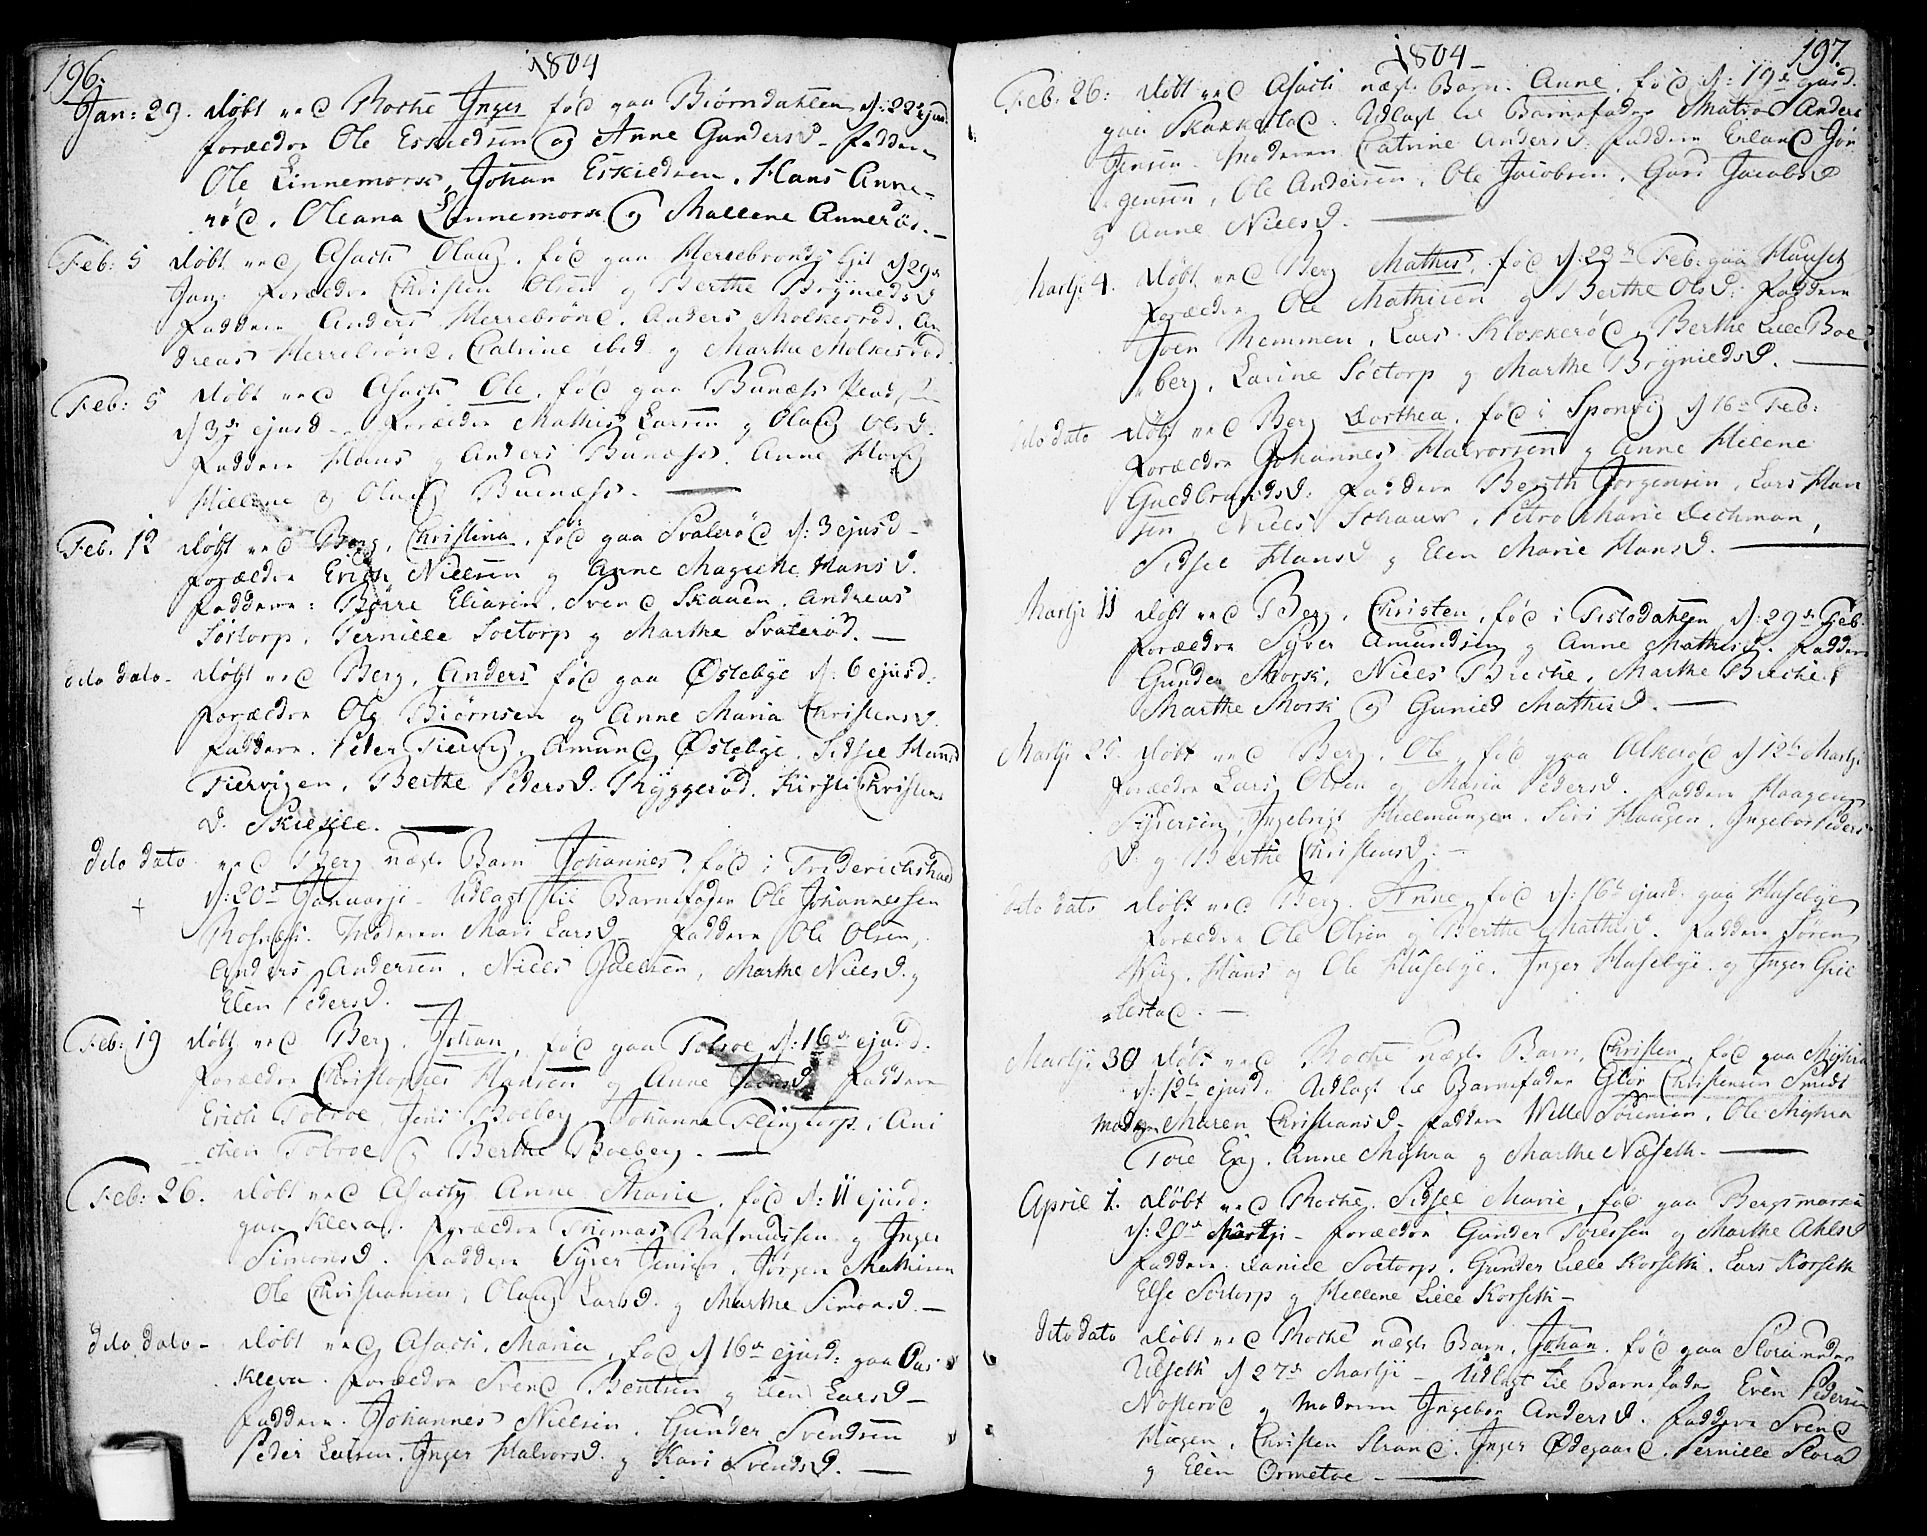 196.
1804
Jan: 29. døbt ved Rocke Inger fød paa Biørndahlen d: 22 ejusd.
forældre Ole Eskildsen og Anne Gundersd. faddere
Ole Linnemorsk, Johan Eskildsen, Hans Anne-
rød, Oleana Linnemorsk og Mallene Annerød. –
Feb: 5 døbt ved Asack Olaug, fød paa Herrebrønds Eji d 29de
Jan: forældre Christen Olsen og Berthe Brynieldsd
faddere Anders Herrebrønd, Anders Molkerød, An
dreas Herrebrønd, Catrine ibid. og Marthe Molkerød
Feb: 5 døbt ved Asack Ole, fød paa Bunæss
d 3de ejusd – forældre Mathis Larsen og Olaug Olsd.
faddere Hans og Anders Bunæss. Anne
Hellene og Olaug Buenæss. –
Feb. 12 døbt ved Berg, Christina, fød paa Svalerød d: 3 ejusd –
forældre Erich Nielsen og Anne Magrethe Hansd.
faddere: Børre Eliasen, Svend Skauen, Andreas
Sørtorp, Pernille Soetorp og Marthe Svalerød. –
dito dato – døbt ved Berg, Anders fød paa Østebye d: 6 ejusd:
forældre Ole Biørnsen og Anne Maria Christensd.
faddere. Peter Tiervig, Amund Østebye, Sidsel Hansd
Tiervigen, Berthe Pedersd. Ryggerød, Kirsti Christens
d. Skielle. –
dito dato ved Berg uægte Barn Johannes, fød i Friderichshald
d: 20de Januarji – Udlagt til Barnefader Ole Johannessen
+
Rosnæss. Moderen Mari Larsd – faddere Ole Olsen,
Anders Andersen, Niels Joelsen, Marthe Nielsd. og
Elen Pedersd. –
Feb: 19 døbt ved Berg, Johan, fød paa Tobroe d: 16de ejusd.
forældre Christopher Hansen og Anne Joensd faddere
Erich Tobroe, Jens Boeberg Johanne Flingtorp, Ani
chen Tobroe og Berthe Boeberg. –
Feb: 26. døbt ved Asack, Anne Marie, fød d: 11 ejusd:
paa Kleva. forældre Thomas Rasmussen og Inger
Simonsd. faddere Syver Jensen, Jørgen Mathisen
Ole Christiansen, Olaug Larsd. og Marthe Simonsd. –
dito dato – døbt ved Asack, Maria, fød d 16de ejusd: paa
Kleva. forældre Svend Bentsen og Elen Larsd –
faddere. Johannes Nielsen, Gunder Svendsen
Peder Larsen, Inger Halvorsd. og Kari Svendsd. –
1804 –
197.
Feb: 26: døbt ved Asack uægte Barn. Anne, fød d: 19de ejusd.
paa Skakkestad. Udlagt til Barnefader Matros Anders
Jensen Moderen Catrine Andersd. faddere Erland Jør
gensen, Ole Andersen, Ole Jacobsen, Guri Jacobsd
og Anne Nielsd. –
Martji 4. døbt ved Berg Mathis, fød d: 23de Feb: paa
forældre Ole Mathisen og Berthe Olsd: faddere
Joen Hemmen, Lars Klokkerød, Berthe Lille Boe
„berg, Larine Soetorp og Marthe Brynieldsd. –
dito dato døbt ved Berg Dorthea, fød i Sponvig d 16de Feb:
forældre Johannes Halvorsen og Anne Helene
Guldbrandsd: faddere Berith Jørgensen, Lars Han
sen, Niels Schauw, Petro Marie Dechman,
Sidsel Hansd og Elen Marie Hansd. –
Martji 11 døbt ved Berg, Christen, fød i Tistedahlen d: 29de Feb:
forældre Syver Amundsen og Anne Mathisd. faddere
Gunder Morsk, Niels Brecke, Marthe Brecke,
Marthe Morsk og Gunild Mathisd. –
Martji 25. døbt ved Berg, Ole, fød paa Alkerød d 12te Martji
forældre Lars Olsen og Maria Pedersd. faddere Haagen
Syversen, Ingebrigt Hielmungen, Siri Haugen, Ingebor Peders
d. og Berthe Christensd. –
dito dato døbt ved Berg. Anne, fød d: 16de ejusd. paa Husebye
forældre Ole Olsen og Berthe Mathisd. faddere Søren
Wiig, Hans og Ole Husebye, Inger Husebye, og Inger Giel
„lestad. –
Martji 30 døbt ved Rocke uægte Barn, Christen, fød paa Myhra
d: 12te ejusd. Udlagt til Barnefader Glör Christensen Smidt
Moderen Maren Christiansd – faddere Wille Sørensen, Ole Myhra
Tore Eng, Anne Myhra og Marthe Næseth. –
April 1. døbt ved Rocke. Sidsel Marie, fød paa Bergsmarken
d: 20de Martji – forældre Gunder Toressen og Marthe Ahlsd
faddere. Daniel Soetorp, Gunder Lille Korseth, Lars Korseth
Else Sørtorp og Hellene Lille Korseth –
dito dato døbt ved Rocke uægte Barn, Johan, fød paa Flora under
Ulseth d 27de Martji – Udlagt til Barnefader Even Pedersen
Nosterød og Moderen Ingebor Andersd. faddere Svend
Hagen, Christen Strand, Inger Ødegaard, Pernille Flora
og Elen Ormetoe –